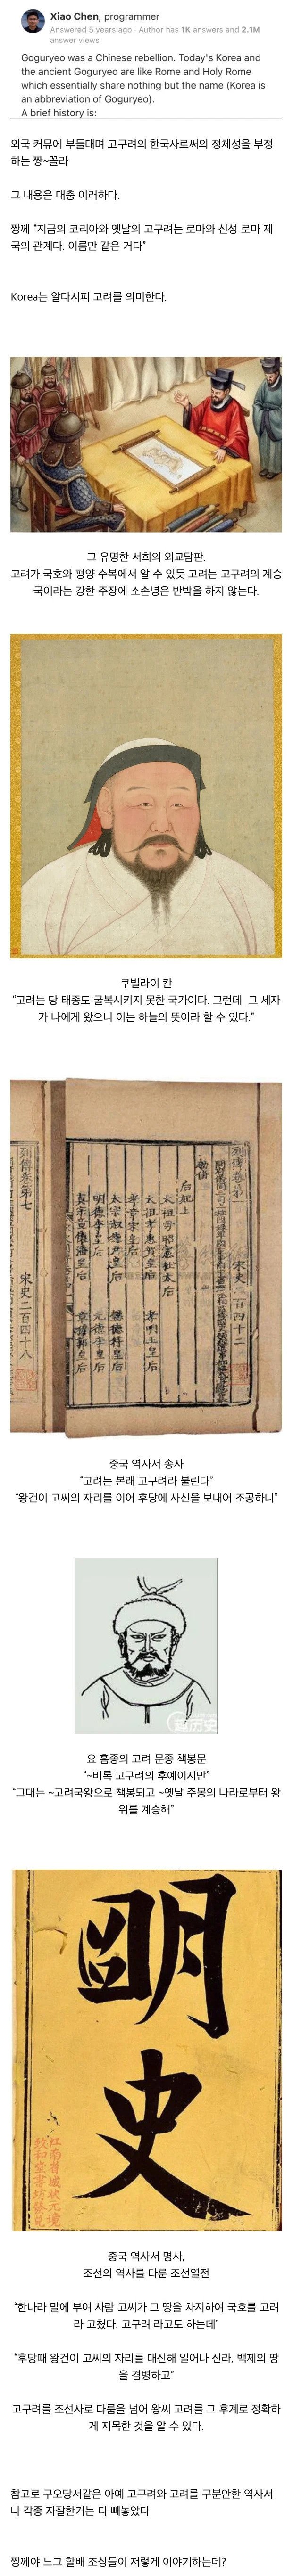 Xiao Chen, programmer
Answered 5 years ago · Author has 1K answers and 2.1M
answer views
Goguryeo was a Chinese rebellion. Today's Korea and
the ancient Goguryeo are like Rome and Holy Rome
which essentially share nothing but the name (Korea is
an abbreviation of Goguryeo).
A brief history is:
외국 커뮤에 부들대며 고구려의 한국사로써의 정체성을 부정
하는 짱~꼴라
그 내용은 대충 이러하다.
짱께 "지금의 코리아와 옛날의 고구려는 로마와 신성 로마 제
국의 관계다. 이름만 같은 거다"
Korea는 알다시피 고려를 의미한다.
그 유명한 서희의 외교담판.
고려가 국호와 평양 수복에서 알 수 있듯 고려는 고구려의 계승
국이라는 강한 주장에 소손녕은 반박을 하지 않는다.
쿠빌라이 칸
"고려는 당 태종도 굴복시키지 못한 국가이다. 그런데 그 세자
가 나에게 왔으니 이는 하늘의 뜻이라 할 수 있다."
列傳卷第七
宋史二百四十八
列傳卷第一
宋史二百四十二
后妃上
中국 역사서 송사
"고려는 본래 고구려라 불린다"
"왕건이 고씨의 자리를 이어 후당에 사신을 보내어 조공하니"
요 흥종의 고려 문종 책봉문
"~비록 고구려의 후예이지만"
"그대는 ~고려국왕으로 책봉되고 ~옛날 주몽의 나라로부터 왕
위를 계승해"
明
史
중국 역사서 명사,
조선의 역사를 다룬 조선열전
"한나라 말에 부여 사람 고씨가 그 땅을 차지하여 국호를 고려
라 고쳤다. 고구려 라고도 하는데"
"후당때 왕건이 고씨의 자리를 대신해 일어나 신라, 백제의 땅
을 겸병하고"
고구려를 조선사로 다룸을 넘어 왕씨 고려를 그 후계로 정확하
게 지목한 것을 알 수 있다.
참고로 구오당서같은 아예 고구려와 고려를 구분안한 역사서
나 각종 자잘한거는 다 빼놓았다
짱께야 느그 할배 조상들이 저렇게 이야기하는데?